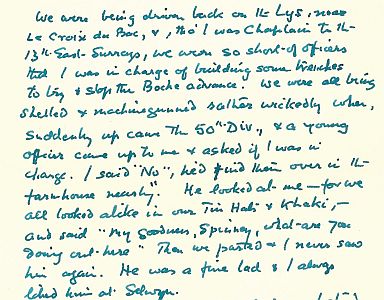 We were being driven back on the Lys, near
Le Croix du Bac, &, tho' I was Chaplain to the
13th East Surreys, we were so short of officers
that I was in charge of building some trenches
to try & stop the Boche advance. We were all being
shelled & machinegunned rather wickedly when,
suddenly up came the 50th Div., & a young
officer came up to me & asked if I was in
charge. I said "No", he'd find them over in the
farmhouse nearby". He looked at me — for we
all looked alike in our Tin Hats & Khaki, —
and said "My goodness, Spinney, what are you
doing out here" Then we parted & I never saw
him again. He was a fine lad & I always
liked him at Selwyn.